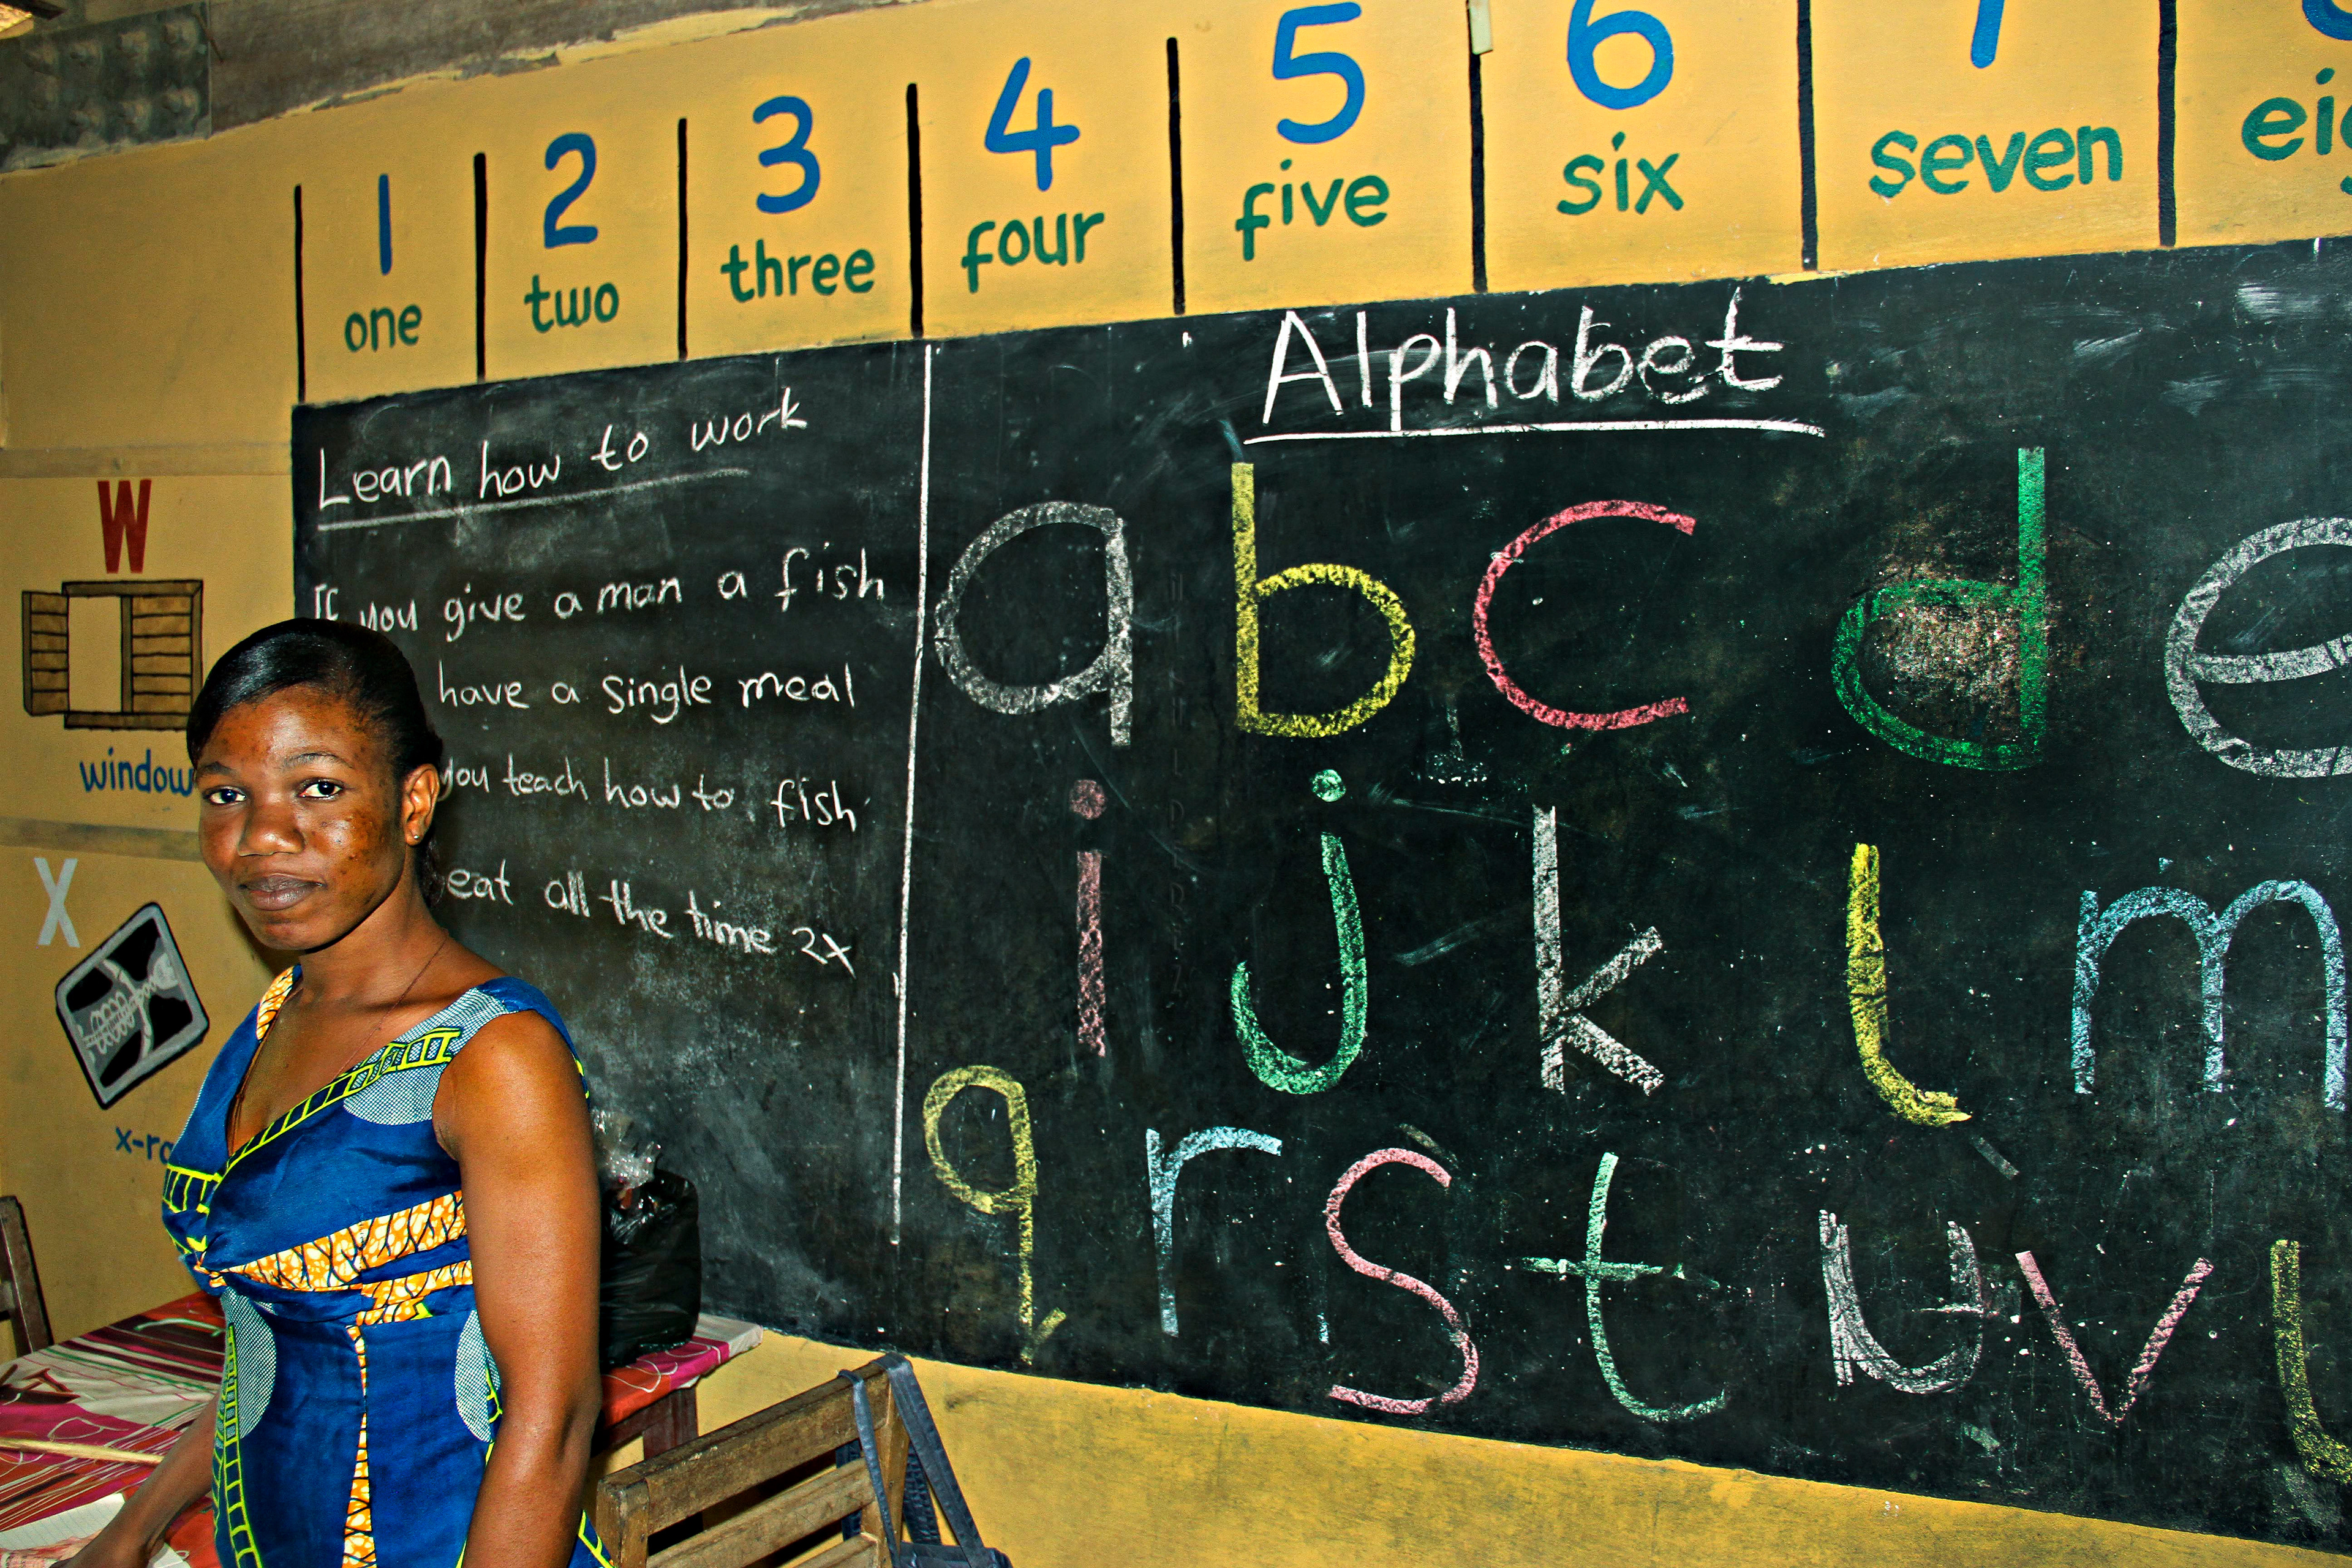 1 2 3 4 5 6 7
one two three four five six seven
Learn how to work
you give a man a fish
have a single meal
you teach how to fish
eat all the time 2x
Alphabet
a b c d e
i j k l m
q r s t u v
W
window
X